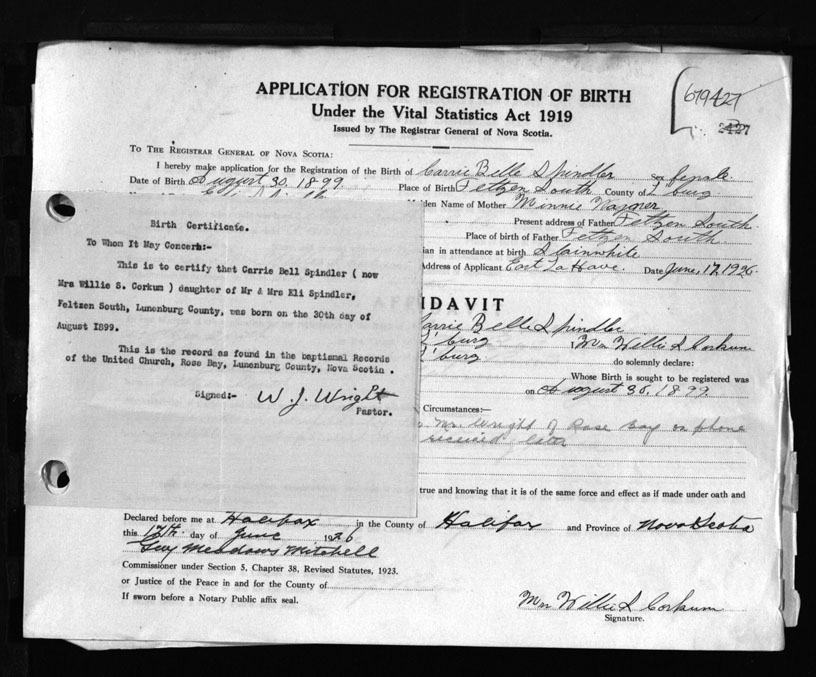 APPLICATION FOR REGISTRATION OF BIRTH
Under the Vital Statistics Act 1919
Issued by The Registrar General of Nova Scotia.
679427
2427
TO THE REGISTRAR GENERAL OF NOVA SCOTIA:
I hereby make application for the Registration of the Birth of Carrie Belle Spindler Sex female.
Date of Birth August 30. 1899. Place of Birth Feltzen South County of L'burg
Maiden Name of Mother Minnie Wagner
Present address of Father Feltzen South.
Place of birth of Father Feltzen South
ian in attendance at birth
Address of Applicant East LaHave. Date June 17, 1926.
Birth Certificate.
To Whom It May Concern:-
This is to certify that Carrie Bell Spindler ( now
Mrs Willie S. Corkum ) daughter of Mr & Mrs Eli Spindler,
Feltzen South, Lunenburg County, was born on the 30th day of
August 1899.
This is the record as found in the baptismal Records
of the United Church, Rose Bay, Lunenburg County, Nova Scotia .
Signed:- W. J. Wright
Pastor.
IDAVIT
Carrie Belle Spindler
L'burg I Mrs Willie S Corkum
L'burg do solemnly declare:
Whose Birth is sought to be registered was
on August 30. 1899.
Circumstances:—
Mr. Wright of Rose Bay on phone
received later
true and knowing that it is of the same force and effect as if made under oath and
Declared before me at Halifax in the County of Halifax and Province of Nova Scotia
this 17th. day of June 1926
Guy Meadows Mitchell
Commissioner under Section 5, Chapter 38, Revised Statutes, 1923.
or Justice of the Peace in and for the County of
If sworn before a Notary Public affix seal.
Mrs Willie S Corkum
Signature.